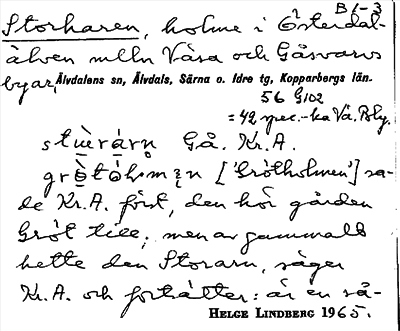 B 1-3
Storharen, holme i Österdal-
älven mlln Våsa och Gåsvarvs
byar, Älvdalens sn, Älvdals, Särna o. Idre tg, Kopparbergs län.
56 G102
= 49 spec.-ka Vå. Bly.
stùeràrn Gå. Kr. A.
[ʻGrötholmen'] sa-
de Kr. A. först, den hör gården
Gröt till; men av gammalt
hette den Storarn, säger
Kr. A. och fortsätter: är en så-
HELGE LINDBERG 1965.